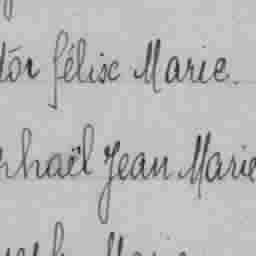 tor félise Marie
phaël Jean Marie